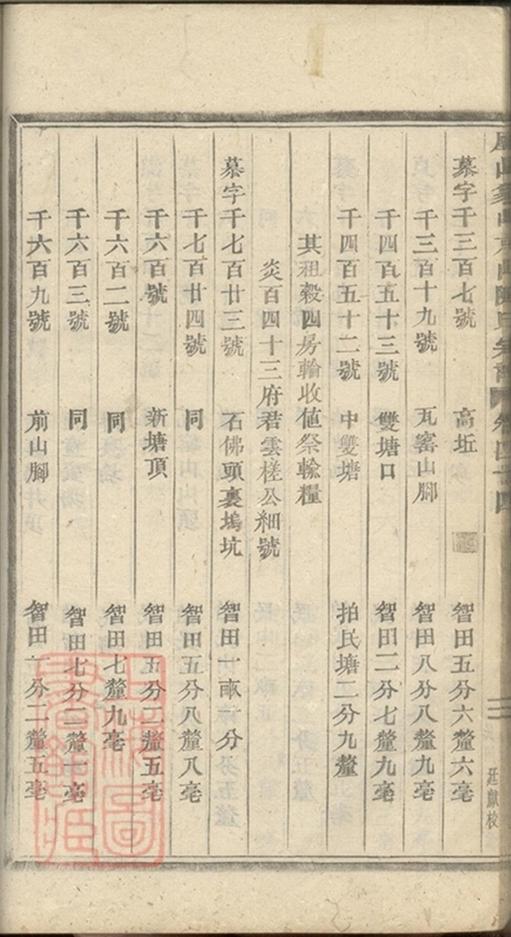 慕字千三百七號 高坵 智田五分六釐六毫
千三百十九號 瓦窰山腳 智田八分八釐九毫
千四百五十三號 雙塘口 智田二分七釐九毫
千四百五十二號 中雙塘 拍民塘二分九釐
其祖穀四房輪收值祭輸糧
炎百四十三府君雲槎公細號
慕字千七百廿三號 石佛頭裏塢坑 智田一畝一分
千七百廿四號 同 智田五分八釐八毫
千六百號 新塘頂 智田五分二釐五毫
千六百二號 同 智田七釐九毫
千六百三號 同 智田七分二釐一毫
千六百九號 前山腳 智田一分二釐五毫
卷四十四
廷獻校